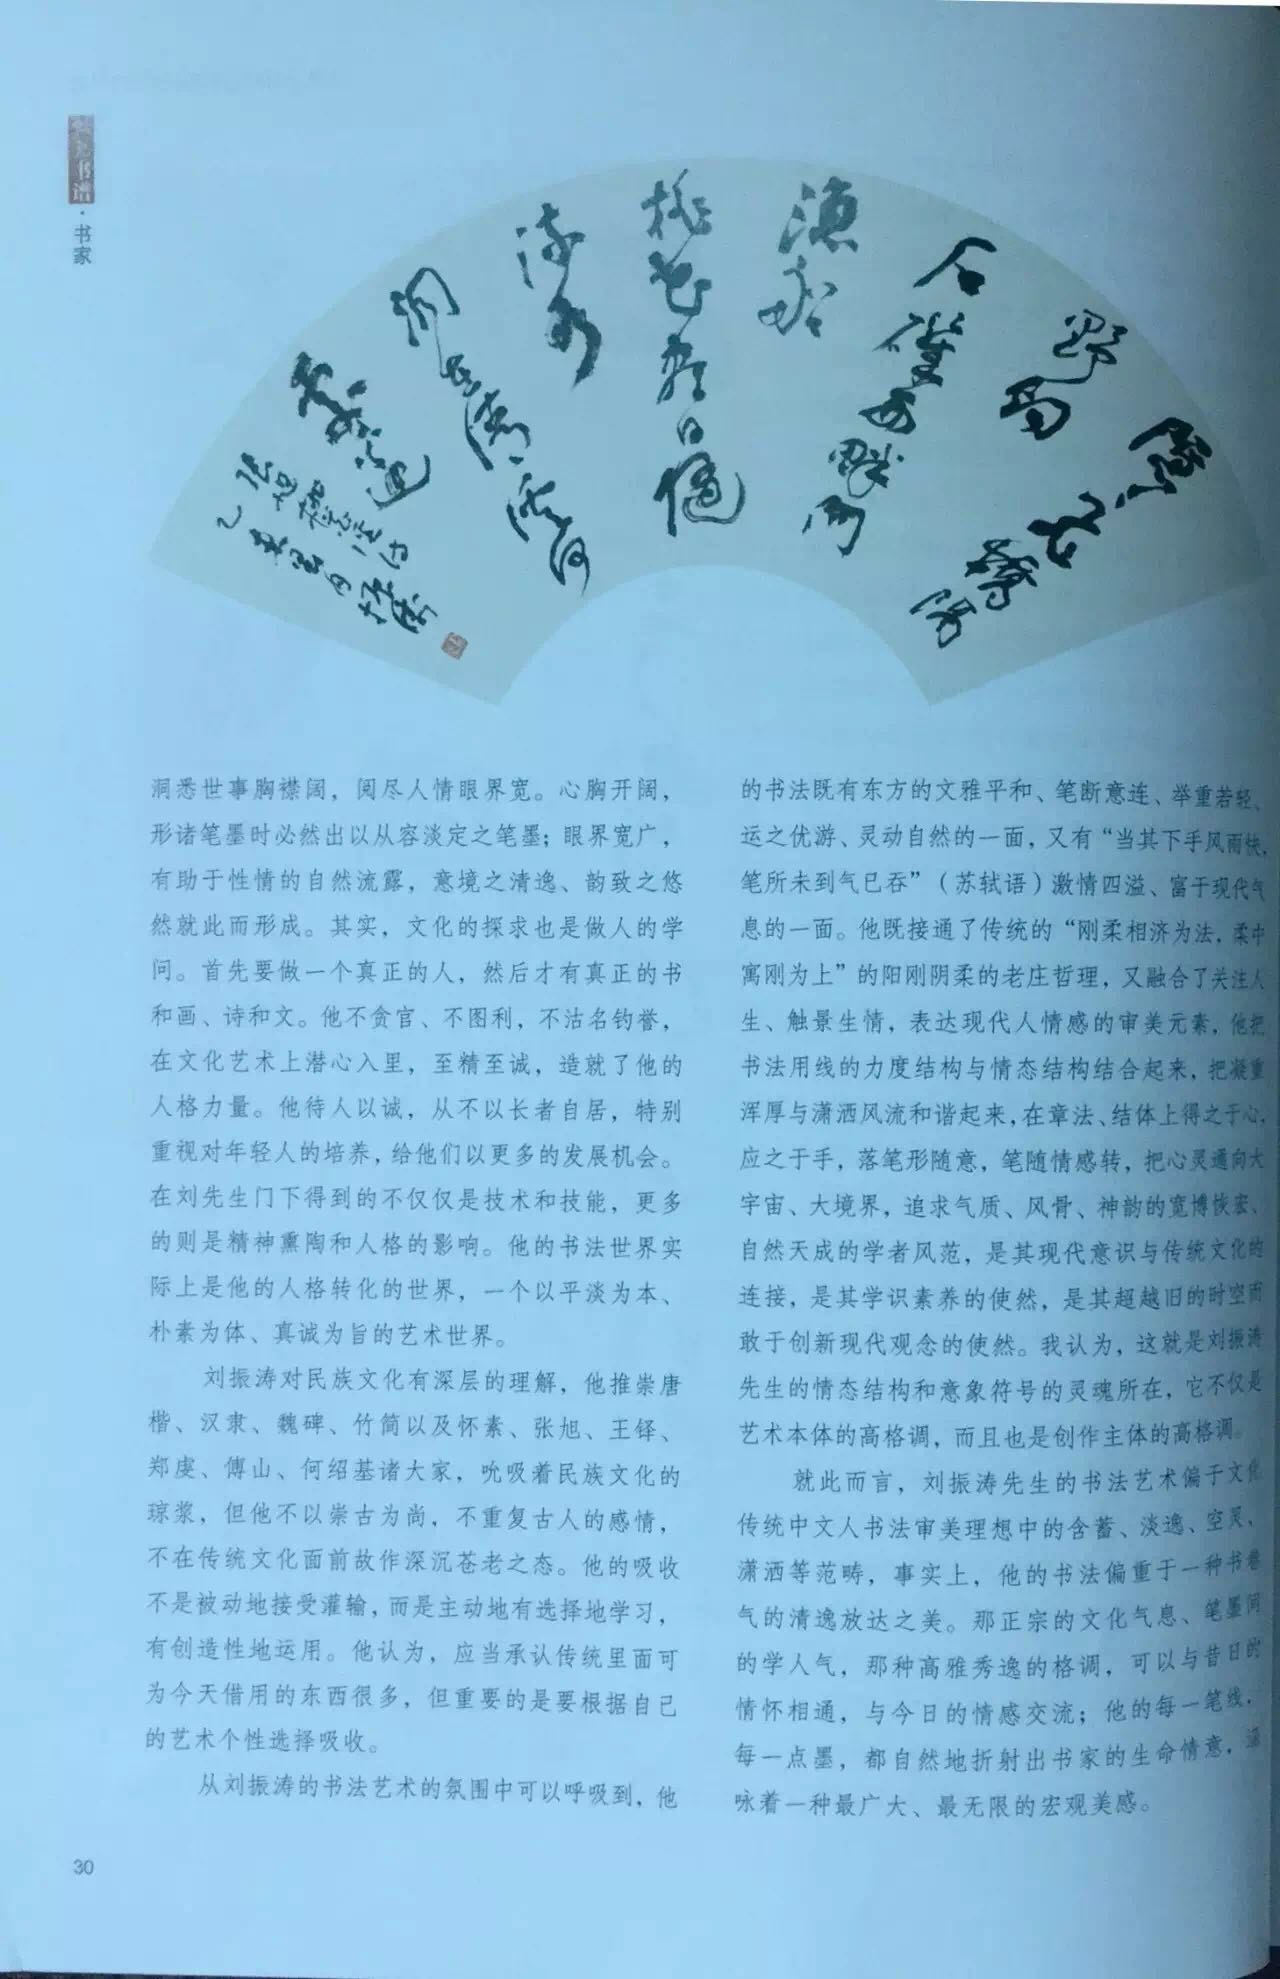 书谱·书家
隐
飞桥隔
野
石矶西畔问
渔船
桃花尽日随
流水
洞在清溪何
处边
张旭桃花溪
洞悉世事胸襟阔，阅尽人情眼界宽。心胸开阔，
形诸笔墨时必然出以从容淡定之笔墨；眼界宽广，
有助于性情的自然流露，意境之清逸、韵致之悠
然就此而形成。其实，文化的探求也是做人的学
问。首先要做一个真正的人，然后才有真正的书
和画、诗和文。他不贪官、不图利，不沽名钓誉，
在文化艺术上潜心入里，至精至诚，造就了他的
人格力量。他待人以诚，从不以长者自居，特别
重视对年轻人的培养，给他们以更多的发展机会。
在刘先生门下得到的不仅仅是技术和技能，更多
的则是精神熏陶和人格的影响。他的书法世界实
际上是他的人格转化的世界，一个以平淡为本、
朴素为体、真诚为旨的艺术世界。
刘振涛对民族文化有深层的理解，他推崇唐
楷、汉隶、魏碑、竹简以及怀素、张旭、王铎、
郑虔、傅山、何绍基诸大家，吮吸着民族文化的
琼浆，但他不以崇古为尚，不重复古人的感情，
不在传统文化面前故作深沉苍老之态。他的吸收
不是被动地接受灌输，而是主动地有选择地学习，
有创造性地运用。他认为，应当承认传统里面可
为今天借用的东西很多，但重要的是要根据自己
的艺术个性选择吸收。
从刘振涛的书法艺术的氛围中可以呼吸到，他
的书法既有东方的文雅平和、笔断意连、举重若轻、
运之优游、灵动自然的一面，又有“当其下手风雨快，
笔所未到气已吞”（苏轼语）激情四溢、富于现代气
息的一面。他既接通了传统的“刚柔相济为法，柔中
寓刚为上”的阳刚阴柔的老庄哲理，又融合了关注人
生、触景生情，表达现代人情感的审美元素，他把
书法用线的力度结构与情态结构结合起来，把凝重
浑厚与潇洒风流和谐起来，在章法、结体上得之于心，
应之于手，落笔形随意，笔随情感转，把心灵通向大
宇宙、大境界，追求气质、风骨、神韵的宽博恢宏、
自然天成的学者风范，是其现代意识与传统文化的
连接，是其学识素养的使然，是其超越旧的时空而
敢于创新现代观念的使然。我认为，这就是刘振涛
先生的情态结构和意象符号的灵魂所在，它不仅是
艺术本体的高格调，而且也是创作主体的高格调。
就此而言，刘振涛先生的书法艺术偏于文化
传统中文人书法审美理想中的含蓄、淡逸、空灵、
潇洒等范畴，事实上，他的书法偏重于一种书卷
气的清逸放达之美。那正宗的文化气息、笔墨间
的学人气，那种高雅秀逸的格调，可以与昔日的
情怀相通，与今日的情感交流；他的每一笔线，
每一点墨，都自然地折射出书家的生命情意，
咏着一种最广大、最无限的宏观美感。
30